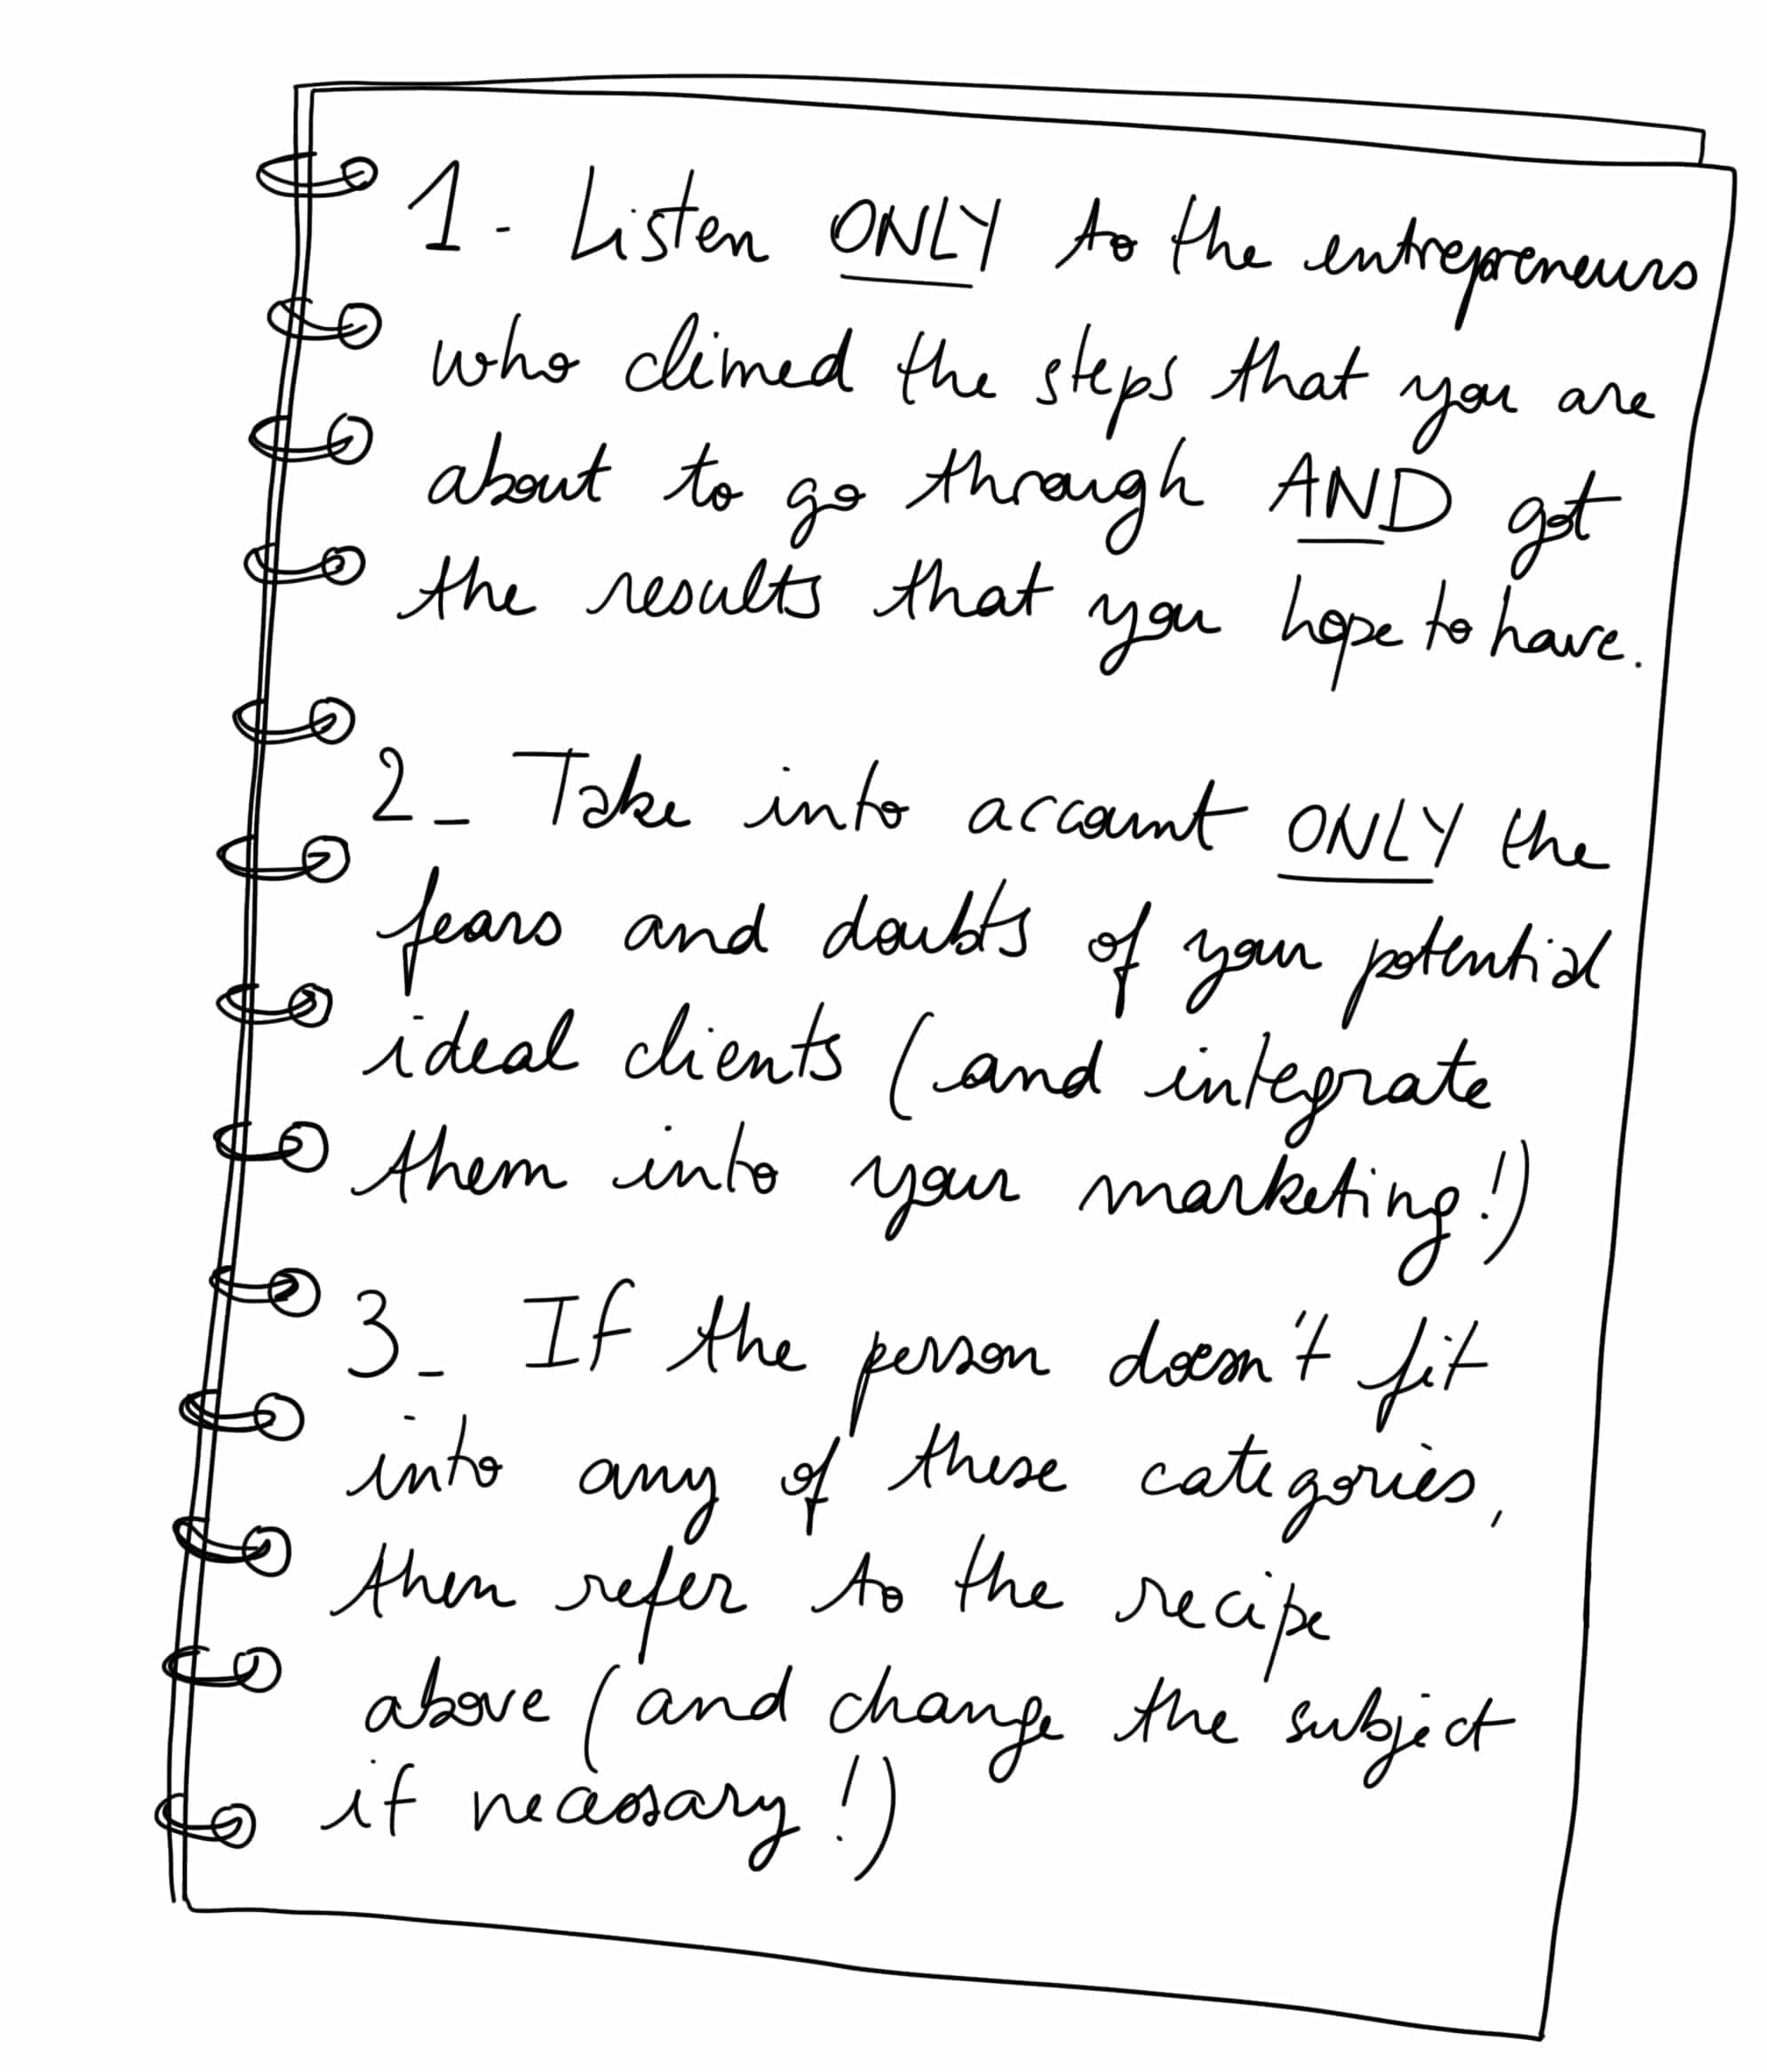 1- Listen ONLY to the entrepreneurs
who climed the steps that you are
about to go through AND got
the results that you hope to have.
2_ Take into account ONLY the
fears and doubts of your potential
ideal clients (and integrate
them into your marketing!)
3_ If the person doesn't fit
into any of these categories,
then refer to the recipe
above (and change the subject
if necessary!)